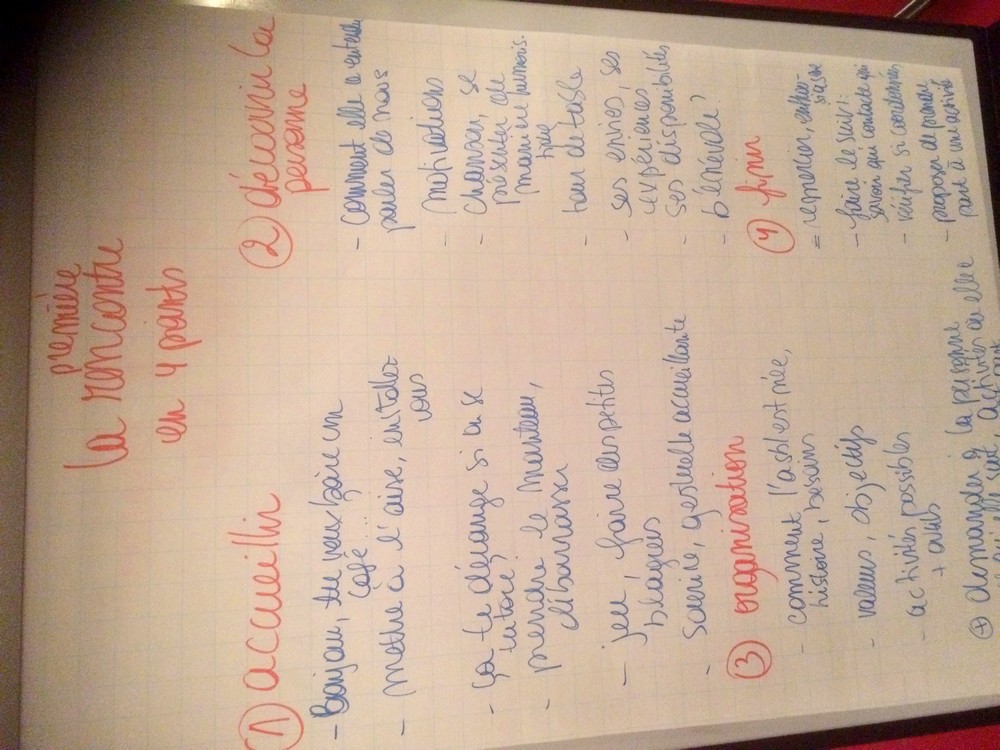 première
la rencontre
en 4 points
① accueillir
- Bonjour, tu veux boire un
café...
- mettre à l'aise, installez
vous
- ça te dérange si on se
tutoie?
- prendre le manteau,
débarrasser
- jeu, faire des petites
blagues
- sourire, gestuelle accueillante
② découvrir la
personne
- comment elle a entendu
parler de nous
- motivations
- chanson, se
présenter de
manière humoris.
tique
- tour de table
- ses envies, ses
expériences
- ses disponibilités
- bénévole?
③ organisation
- comment l'asbl est née,
histoire, besoins
- valeurs, objectifs
- activités possibles
+ outils
⊕ demander à la personne
activités où elle
④ finir
= remercier,
- faire le suivi:
savoir qui contacte qui
- vérifier si coordonnées
- proposer de prendre
part à une activité